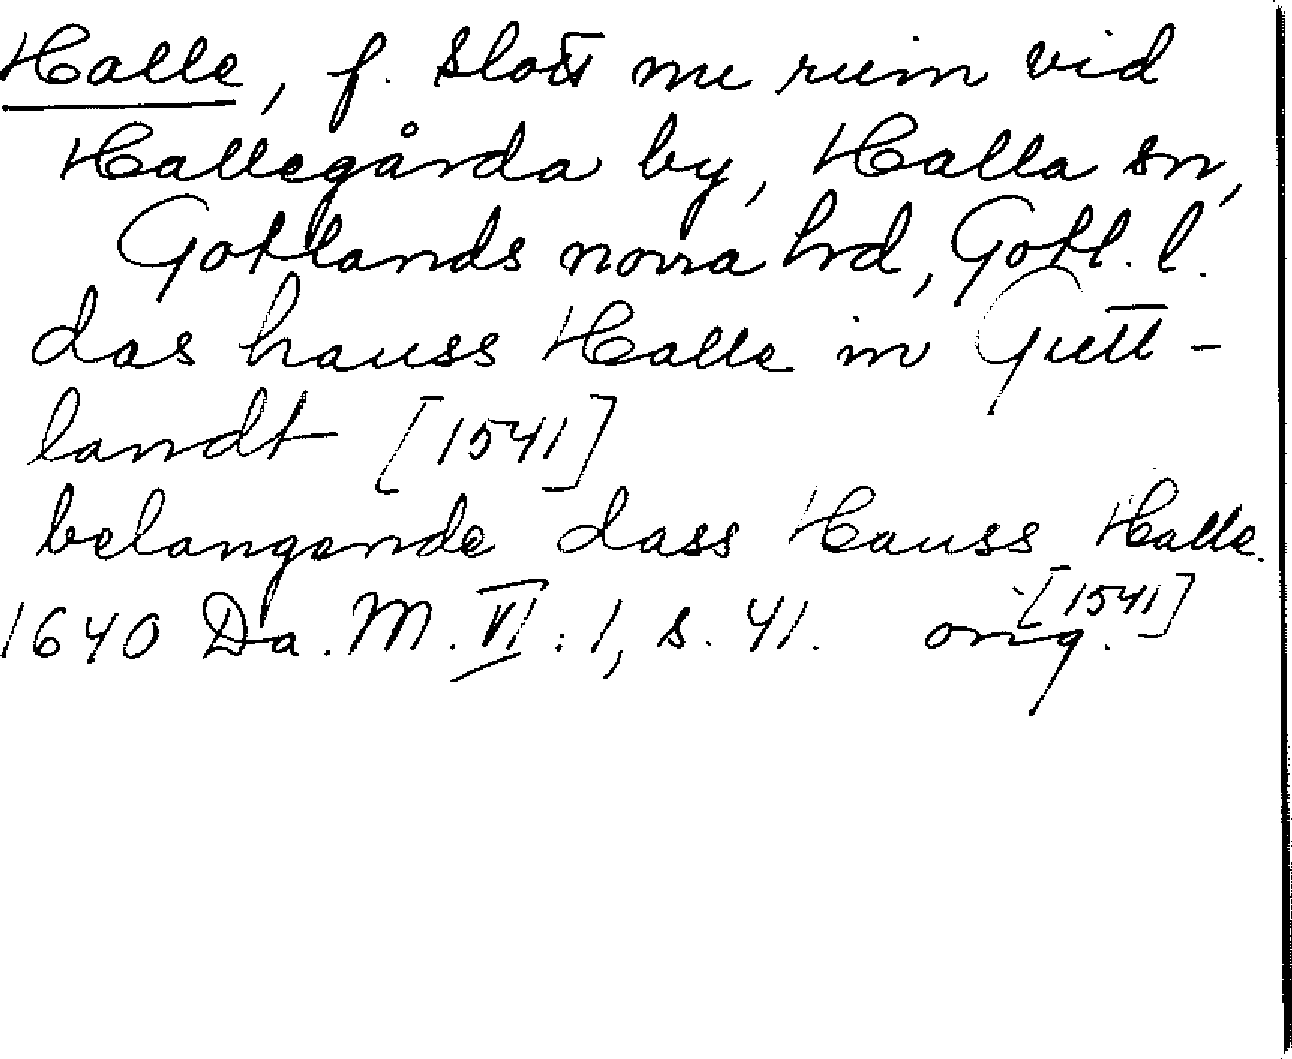 Halle, f. slott nu ruin vid
Hallegårda by, Halla sn,
Gotlands norra hrd, Gotl. l.
das hauss Halle in Gutt-
landt [1541]
belangende dass Hauss Halle
[1541]
1640 Da. M. VI: 1, s. 41. orig.